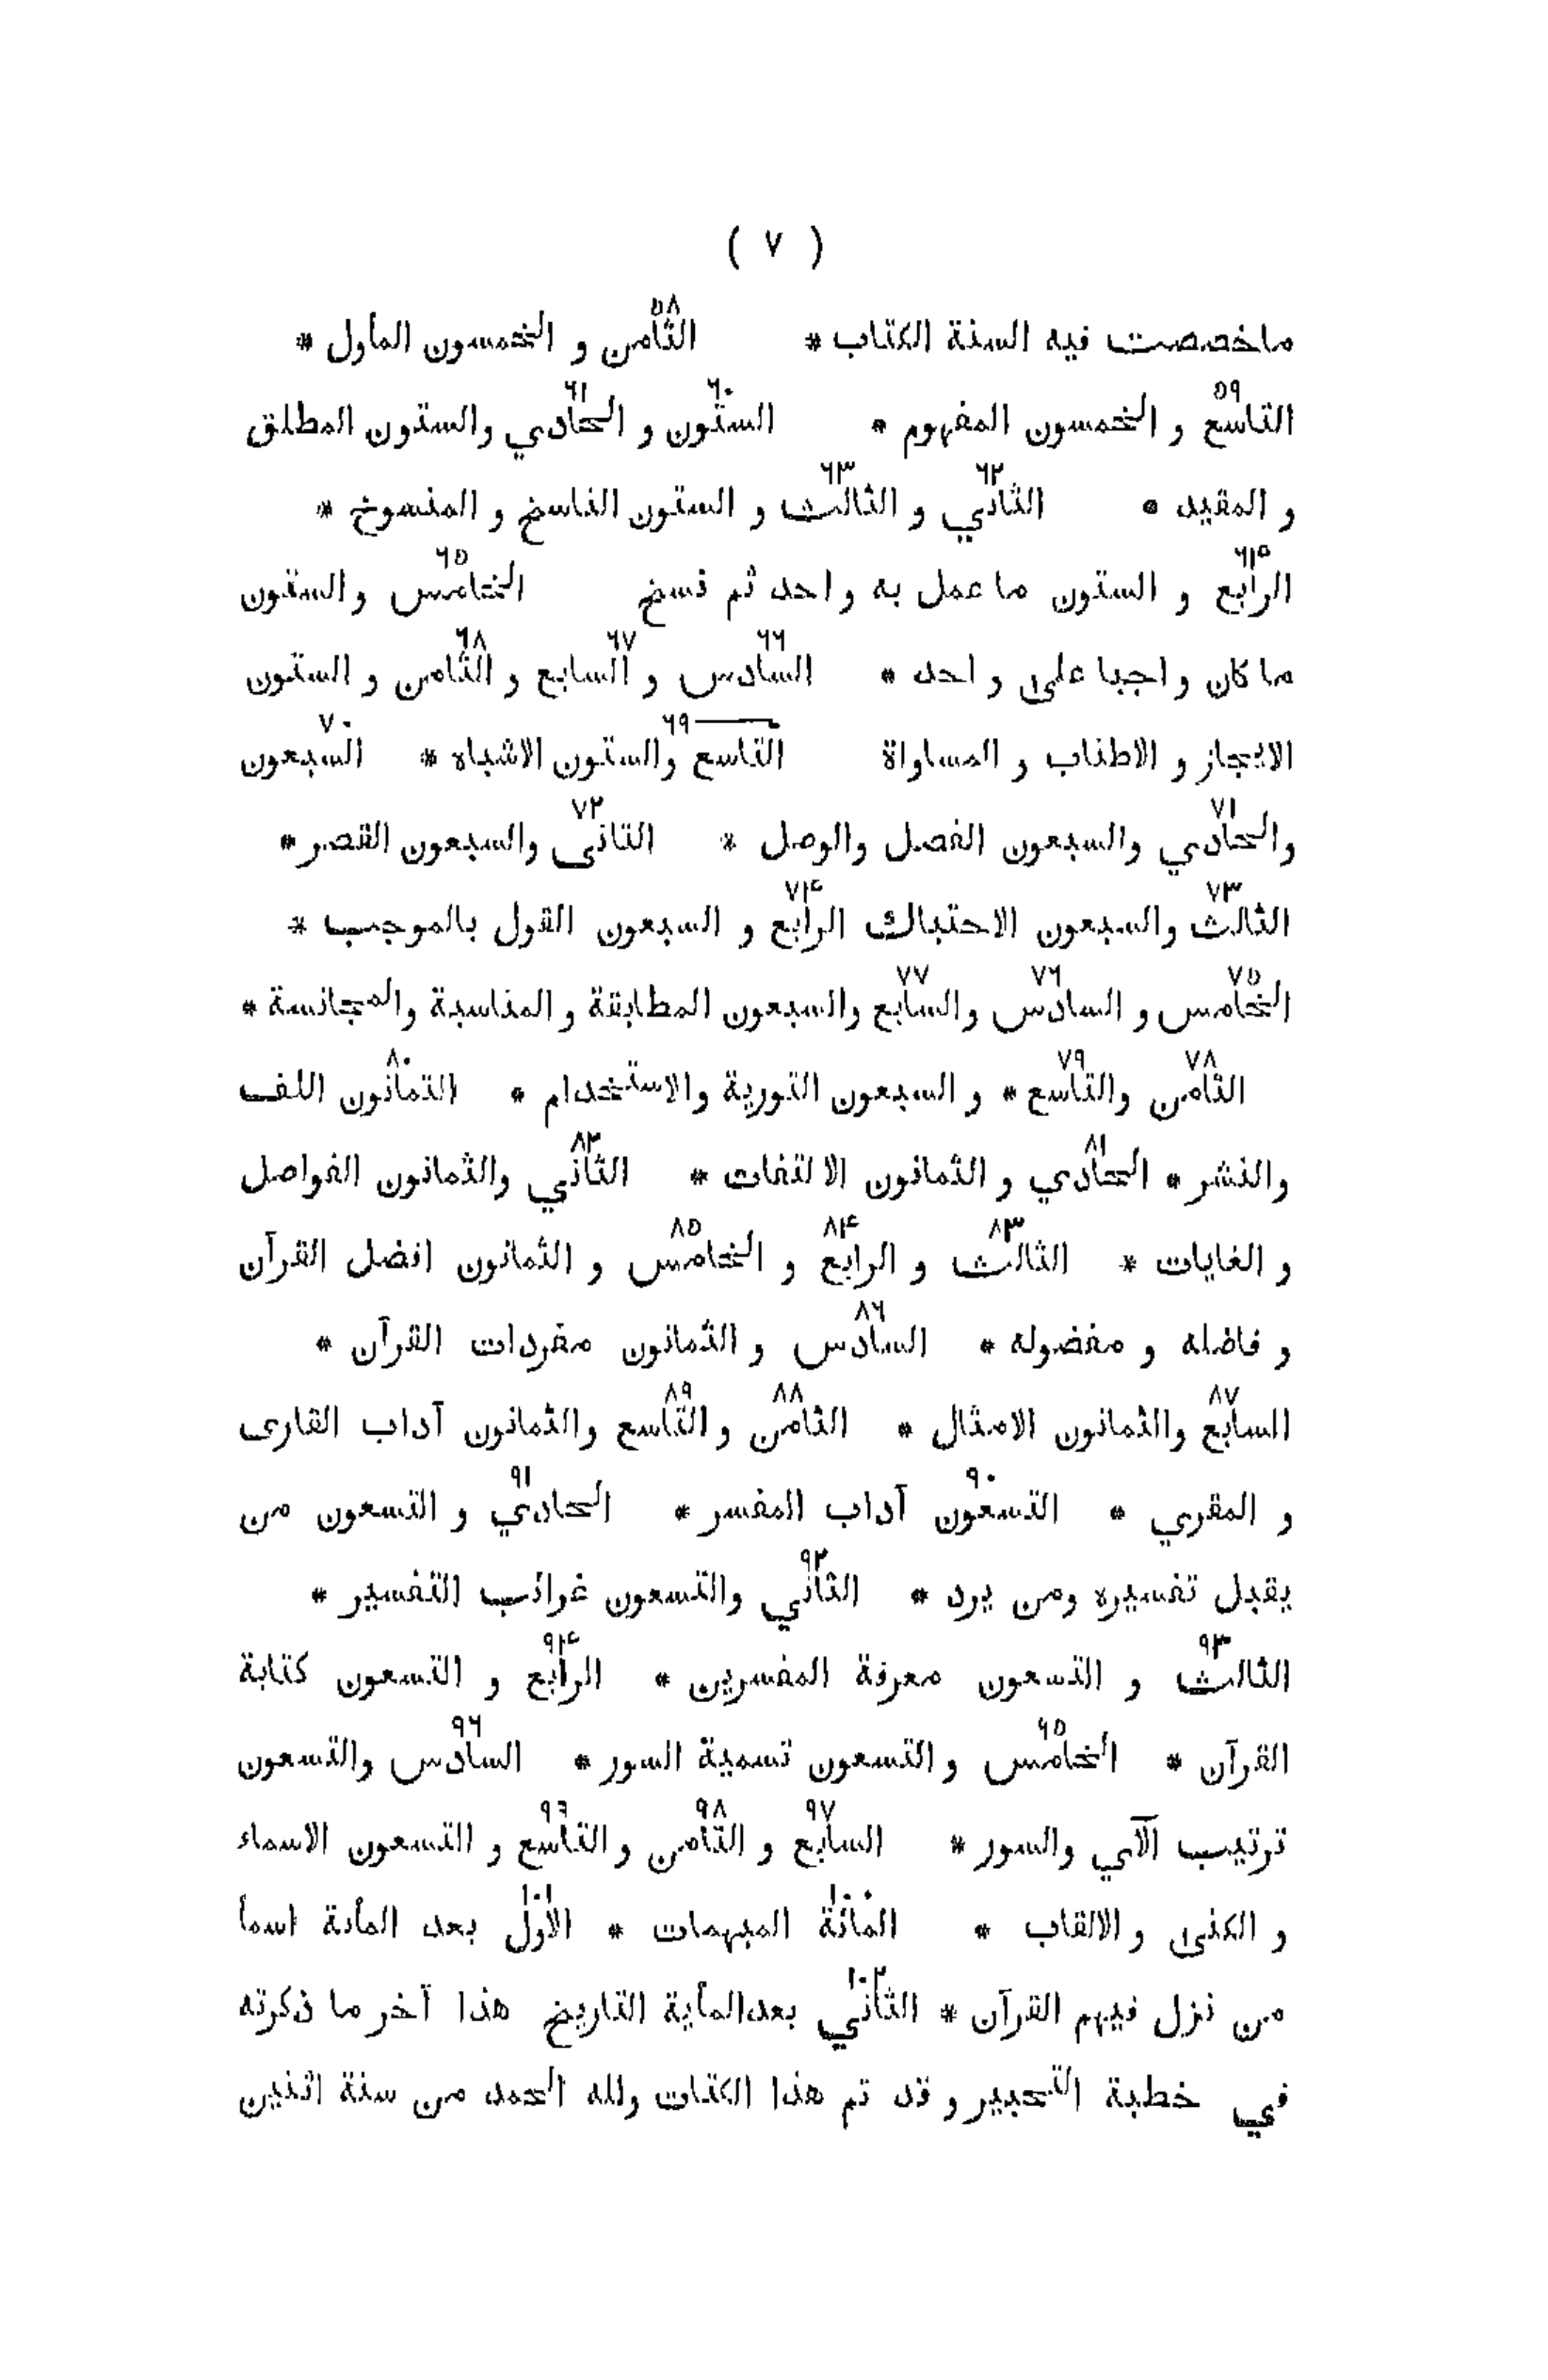 ( ٧ )
٥٨
ماخصصت فيه السنة الكتاب * الثامن و الخمسون المأول *
٥٩ ٦٠ ٦١
التاسع و الخمسون المفهوم * الستون و الحادي والستون المطلق
٦٢ ٦٣
و المقيد * الثاني و الثالث و الستون الناسخ و المنسوخ *
٦۴ ٦٥
الرابع و الستون ما عمل به واحد ثم نسخ الخامس والستون
٦٦ ٦٧ ٦٨
ما كان واجبا على واحد * السادس و السابع و الثامن و الستون
٦٩ ٧٠
الايجاز و الاطناب و المساواة التاسع والستون الاشباه * السبعون
٧١ ٧٢
والحادي والسبعون الفصل والوصل * الثانى والسبعون القصر *
٧٣ ٧۴
الثالث والسبعون الاحتباك الرابع و السبعون القول بالموجب *
٧٥ ٧٦ ٧٧
الخامس و السادس والسابع والسبعون المطابقة و المناسبة والمجانسة *
٧٨ ٧٩ ٨٠
الثامن والتاسع * و السبعون التورية والاستخدام * الثمانون اللف
٨١ ٨٢
والنشر * الحادي و الثمانون الالتفات * الثاني والثمانون الفواصل
٨٣ ٨۴ ٨٥
و الغايات * الثالث و الرابع و الخامس و الثمانون افضل القرآن
٨٦
و فاضله و مفضوله * السادس و الثمانون مفردات القرآن *
٨٧ ٨٨ ٨٩
السابع والثمانون الامثال * الثامن و التاسع والثمانون آداب القارى
٩٠ ٩١
و المقري * التسعون آداب المفسر * الحادي و التسعون من
٩٢
يقبل تفسيره ومن يرد * الثاني والتسعون غرائب التفسير *
٩٣ ٩۴
الثالث و التسعون معرفة المفسرين * الرابع و التسعون كتابة
٩٥ ٩٦
القرآن * الخامس و التسعون تسمية السور * السادس والتسعون
٩٧ ٩٨ ٩٩
ترتيب الآي والسور * السابع و الثامن و التاسع و التسعون الاسماء
١٠٠ ١٠١
و الكنى و الالقاب * المائة المبهمات * الاول بعد المأئة اسمأ
١٠٢
من نزل فيهم القرآن * الثاني بعدالمأية التاريخ هذا آخر ما ذكرته
في خطبة التحبير و قد تم هذا الكتات ولله الحمد من سنة اثنين